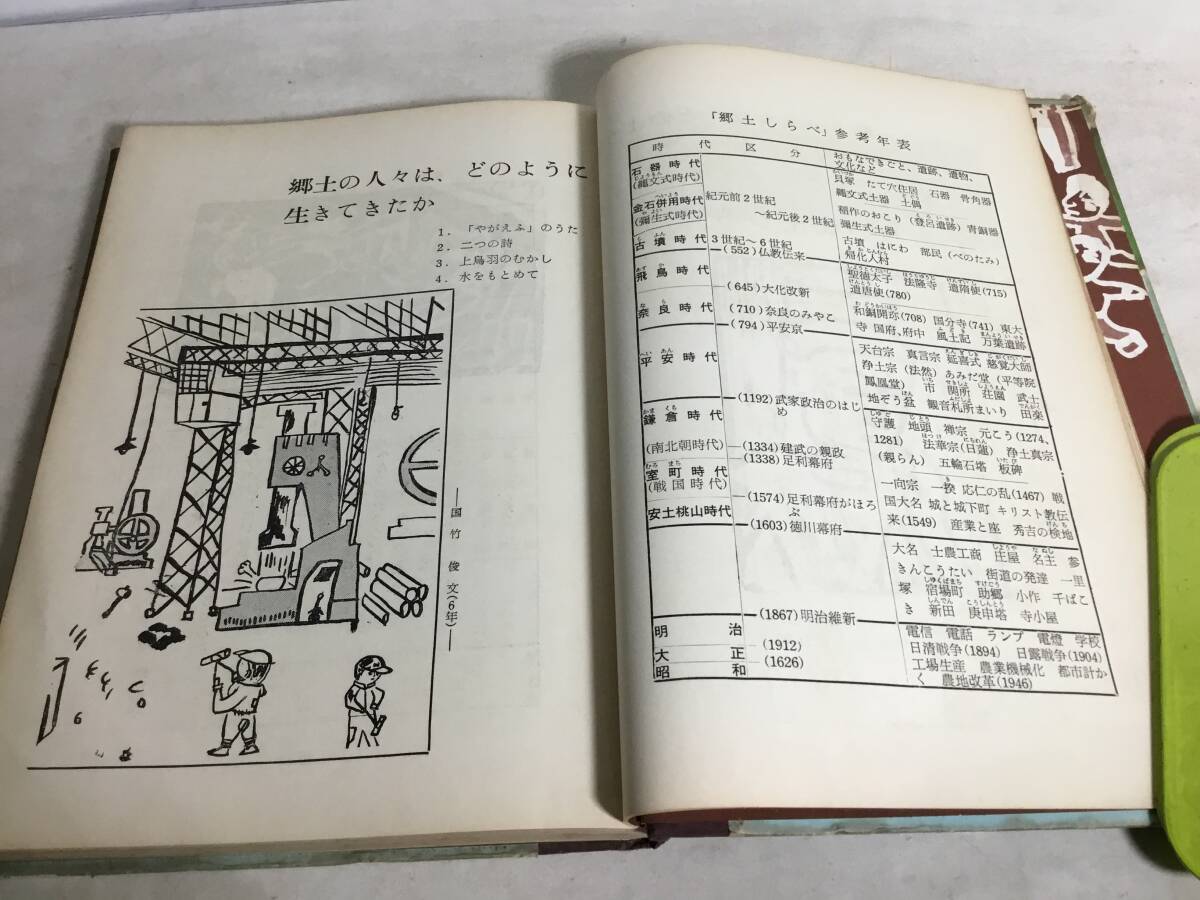 郷土の人々は、どのように
生きてきたか
1. 「やがえふ」のうた
2. 二つの詩
3. 上鳥羽のむかし
4. 水をもとめて
―国竹 俊文(6年)―
「郷土しらべ」参考年表
時代区分
おもなできごと、遺跡、遺物、
文化など
石器時代
(縄文式時代)
貝塚 たて穴住居 石器 骨角器
縄文式土器 土偶
金石併用時代
(彌生式時代)
紀元前2世紀
～紀元後2世紀
稲作のおこり(登呂遺跡)青銅器
彌生式土器
古墳時代
3世紀～6世紀
(552)仏教伝来
古墳 はにわ 部民(べのたみ)
帰化人村
飛鳥時代
(645)大化改新
聖徳太子 法隆寺 遣隋使(715)
遣唐使(780)
奈良時代
(710)奈良のみやこ
(794)平安京
和銅開弥(708) 国分寺(741) 東大
寺 国府、府中 風土記 万葉遺跡
平安時代
天台宗 真言宗 延喜式 慈覚大師
浄土宗(法然) あみだ堂(平等院
鳳凰堂) 市 関所 荘園 武士
地ぞう盆 観音札所まいり 田楽
鎌倉時代
(1192)武家政治のはじ
め
守護 地頭 禅宗 元こう(1274、
1281) 法華宗(日蓮) 浄土真宗
(親らん) 五輪石塔 板碑
(南北朝時代)
(1334)建武の親政
(1338)足利幕府
室町時代
(戦国時代)
一向宗 一揆 応仁の乱(1467) 戦
国大名 城と城下町 キリスト教伝
来(1549) 産業と座 秀吉の検地
安土桃山時代
(1574)足利幕府がほろ
ぶ
(1603)徳川幕府
大名 士農工商 庄屋 名主 参
きんこうたい 街道の発達 一里
塚 宿場町 助郷 小作 千ばこ
き 新田 庚申塔 寺小屋
(1867)明治維新
明治
大正
昭和
(1912)
(1626)
電信 電話 ランプ 電燈 学校
日清戦争(1894) 日露戦争(1904)
工場生産 農業機械化 都市計か
く 農地改革(1946)